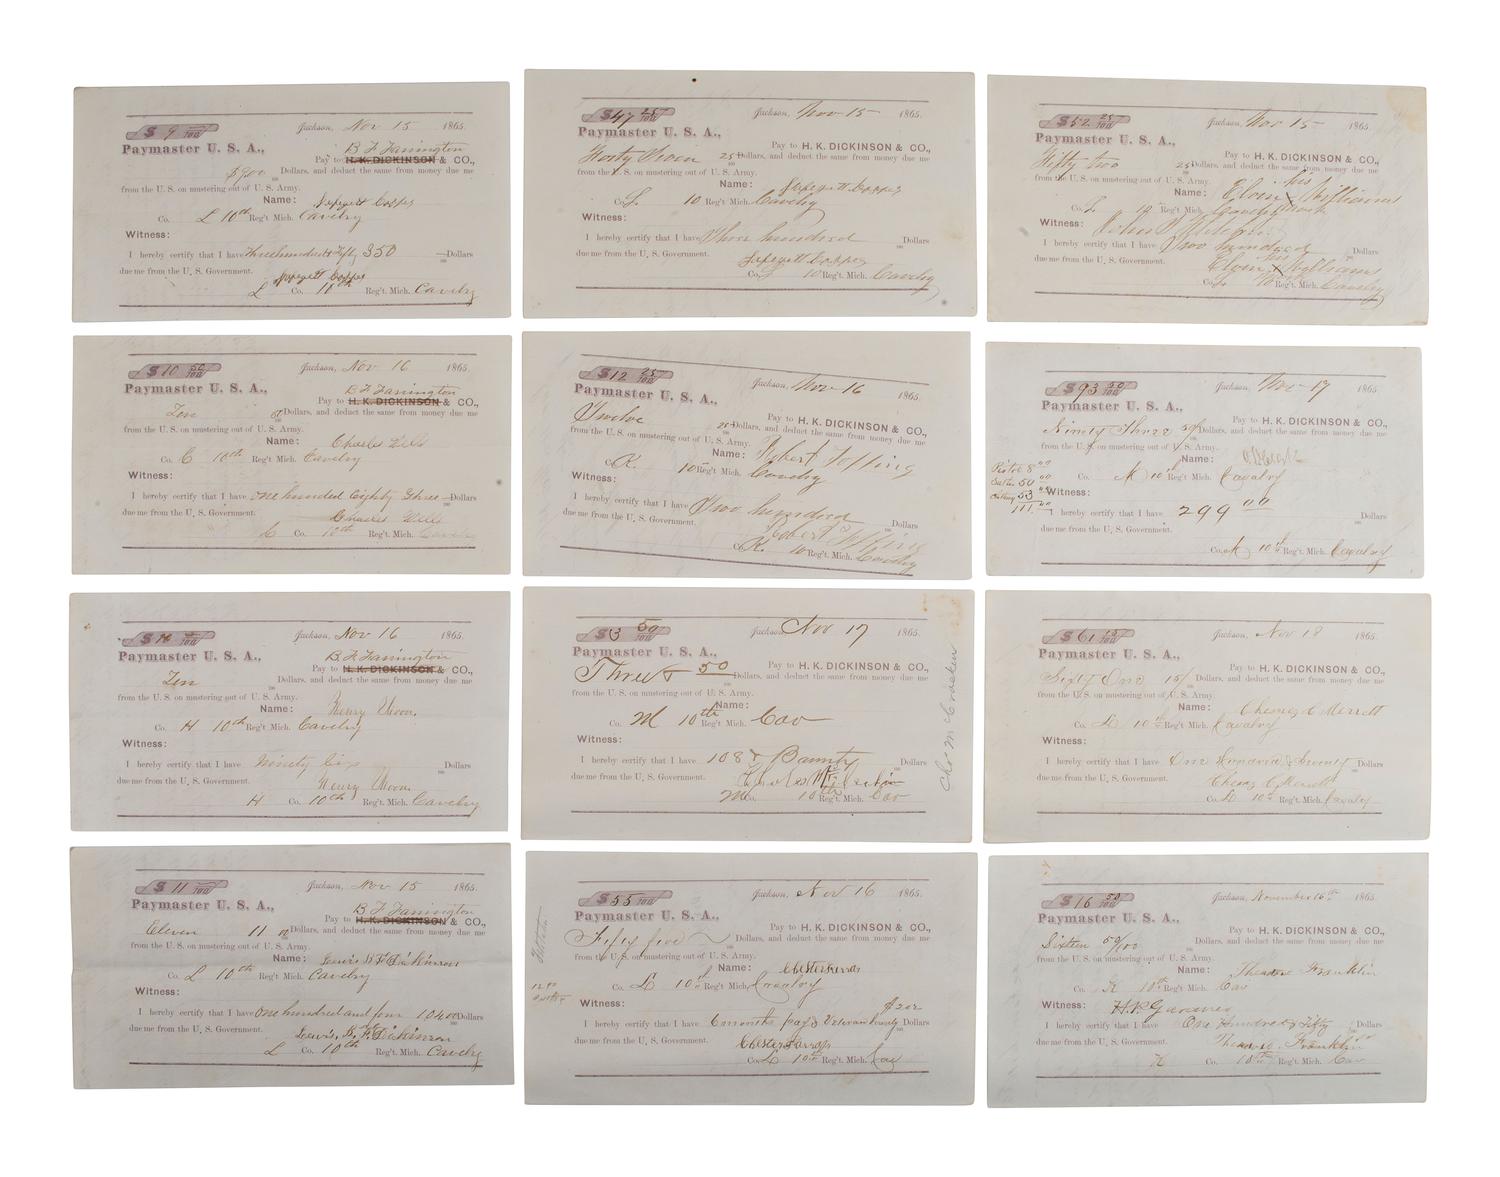 $ 9 /100
Jackson, Nov 15 1865.
Paymaster U. S. A.,
B F Farrington
Pay to H. K. DICKINSON & CO.,
$9.00 Dollars, and deduct the same from money due me
from the U. S. on mustering out of U. S. Army.
Name:
Co. L 10th Reg't Mich. Cavelry
Witness:
I hereby certify that I have Three hundred & Fifty 350 Dollars
due me from the U. S. Government.
L Co. 10th Reg't. Mich. Cavelry
$47 25/100
Jackson, Nov 15 1865.
Paymaster U. S. A.,
Pay to H. K. DICKINSON & CO.,
Forty Seven 25 Dollars, and deduct the same from money due me
from the U. S. on mustering out of U. S. Army.
Name:
Co. L. 10 Reg't Mich. Cavelry
Witness:
I hereby certify that I have Three hundred Dollars
due me from the U. S. Government.
Co. L 10 Reg't. Mich. Cavelry
$52 25/100
Jackson, Nov 15 1865.
Paymaster U. S. A.,
Pay to H. K. DICKINSON & CO.,
Fifty two 25 Dollars, and deduct the same from money due me
from the U. S. on mustering out of U. S. Army.
his
Name: Elvin X Williams
Co. L. 10 Reg't Mich. Cavelry mark
Witness: John
I hereby certify that I have Two hundred Dollars
due me from the U. S. Government. his
Elvin X Williams
Co. 10 Reg't. Mich. Cavelry
$10 50/100
Jackson, Nov 16 1865.
Paymaster U. S. A.,
B F Farrington
Pay to H. K. DICKINSON & CO.,
Ten Dollars, and deduct the same from money due me
from the U. S. on mustering out of U. S. Army.
Name: Charles Wells
Co. C 10th Reg't Mich. Cavelry
Witness:
I hereby certify that I have one hundred Eighty Three Dollars
due me from the U. S. Government.
Charles Wells
C Co. 10th Reg't. Mich. Cavelry
$12 25/100
Jackson, Nov 16 1865.
Paymaster U. S. A.,
Pay to H. K. DICKINSON & CO.,
Twelve 25 Dollars, and deduct the same from money due me
from the U. S. on mustering out of U. S. Army.
Name: Robert Topping
Co. K. 10 Reg't Mich. Cavelry
Witness:
I hereby certify that I have Two hundred Dollars
due me from the U. S. Government.
Robert Topping
Co. K. 10 Reg't. Mich. Cavelry
$93 50/100
Jackson, Nov 17 1865.
Paymaster U. S. A.,
Pay to H. K. DICKINSON & CO.,
Ninety Three 50/ Dollars, and deduct the same from money due me
from the U. S. on mustering out of U. S. Army.
Name:
Pistol 8 00
Co. M 10th Reg't Mich. Cavalry
50 00
53 00
Witness:
111.00
I hereby certify that I have 299 00 Dollars
due me from the U. S. Government.
Co. M 10th Reg't. Mich. Cavalry
$10 /100
Jackson, Nov 16 1865.
Paymaster U. S. A.,
B F Farrington
Pay to H. K. DICKINSON & CO.,
Ten Dollars, and deduct the same from money due me
from the U. S. on mustering out of U. S. Army.
Name: Henry Moon.
Co. H 10th Reg't Mich. Cavelry
Witness:
I hereby certify that I have Ninety Six Dollars
due me from the U. S. Government.
Henry Moon.
H Co. 10th Reg't. Mich. Cavelry
$3 50/100
Jackson, Nov 17 1865.
Paymaster U. S. A.,
Pay to H. K. DICKINSON & CO.,
Three & 50 Dollars, and deduct the same from money due me
from the U. S. on mustering out of U. S. Army.
Name:
Co. M 10th Reg't Mich. Cav
Witness:
I hereby certify that I have 108 & Bounty Dollars
due me from the U. S. Government.
M Co. 10th Reg't. Mich. Cav
Chas McCracken
$61 15/100
Jackson, Nov 18 1865.
Paymaster U. S. A.,
Pay to H. K. DICKINSON & CO.,
Sixty One 15/ Dollars, and deduct the same from money due me
from the U. S. on mustering out of U. S. Army.
Name: Cheney C Merrett
Co. L 10th Reg't Mich. Cavalry
Witness:
I hereby certify that I have One Hundred & Seventy Dollars
due me from the U. S. Government.
Cheney C Merrett
Co. L 10th Reg't. Mich. Cavalry
$11 /100
Jackson, Nov 15 1865.
Paymaster U. S. A.,
B F Farrington
Pay to H. K. DICKINSON & CO.,
Eleven 11 00 Dollars, and deduct the same from money due me
from the U. S. on mustering out of U. S. Army.
Name: Lewis D F Dickinson
Co. L 10th Reg't Mich. Cavelry
Witness:
I hereby certify that I have One hundred and four 104 00 Dollars
due me from the U. S. Government.
Lewis, D. F. Dickinson
L Co. 10th Reg't. Mich. Cavelry
$55 /100
Jackson, Nov 16 1865.
Paymaster U. S. A.,
Pay to H. K. DICKINSON & CO.,
Fifty five Dollars, and deduct the same from money due me
from the U. S. on mustering out of U. S. Army.
Name:
12.00
Co. L 10th Reg't Mich. Cavalry
Witness:
$202
I hereby certify that I have 6 months pay & Veteran bounty Dollars
due me from the U. S. Government.
Co. L 10th Reg't. Mich. Cav
$16 50/100
Jackson, November 16th 1865.
Paymaster U. S. A.,
Pay to H. K. DICKINSON & CO.,
Sixteen 50/100 Dollars, and deduct the same from money due me
from the U. S. on mustering out of U. S. Army.
Name: Theodore Franklin
Co. K 10th Reg't Mich. Cav
Witness: H. P.
I hereby certify that I have One Hundred & Fifty Dollars
due me from the U. S. Government.
Theodore Franklin
K Co. 10th Reg't. Mich. Cav